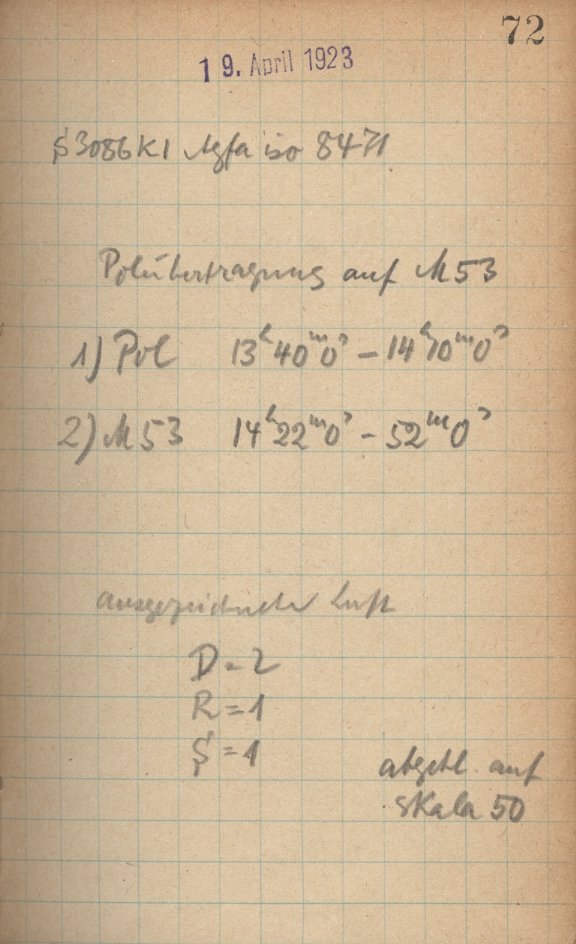 72
19. April 1923
S3086K1 Agfa iso 8471
Polübertragung auf M53
1) Pol 13ʰ40ᵐ0ˢ – 14ʰ10ᵐ0ˢ
2) M53 14ʰ22ᵐ0ˢ – 52ᵐ0ˢ
ausgezeichnete Luft
D = 2
R = 1
S = 1
abgebl. auf
Skala 50